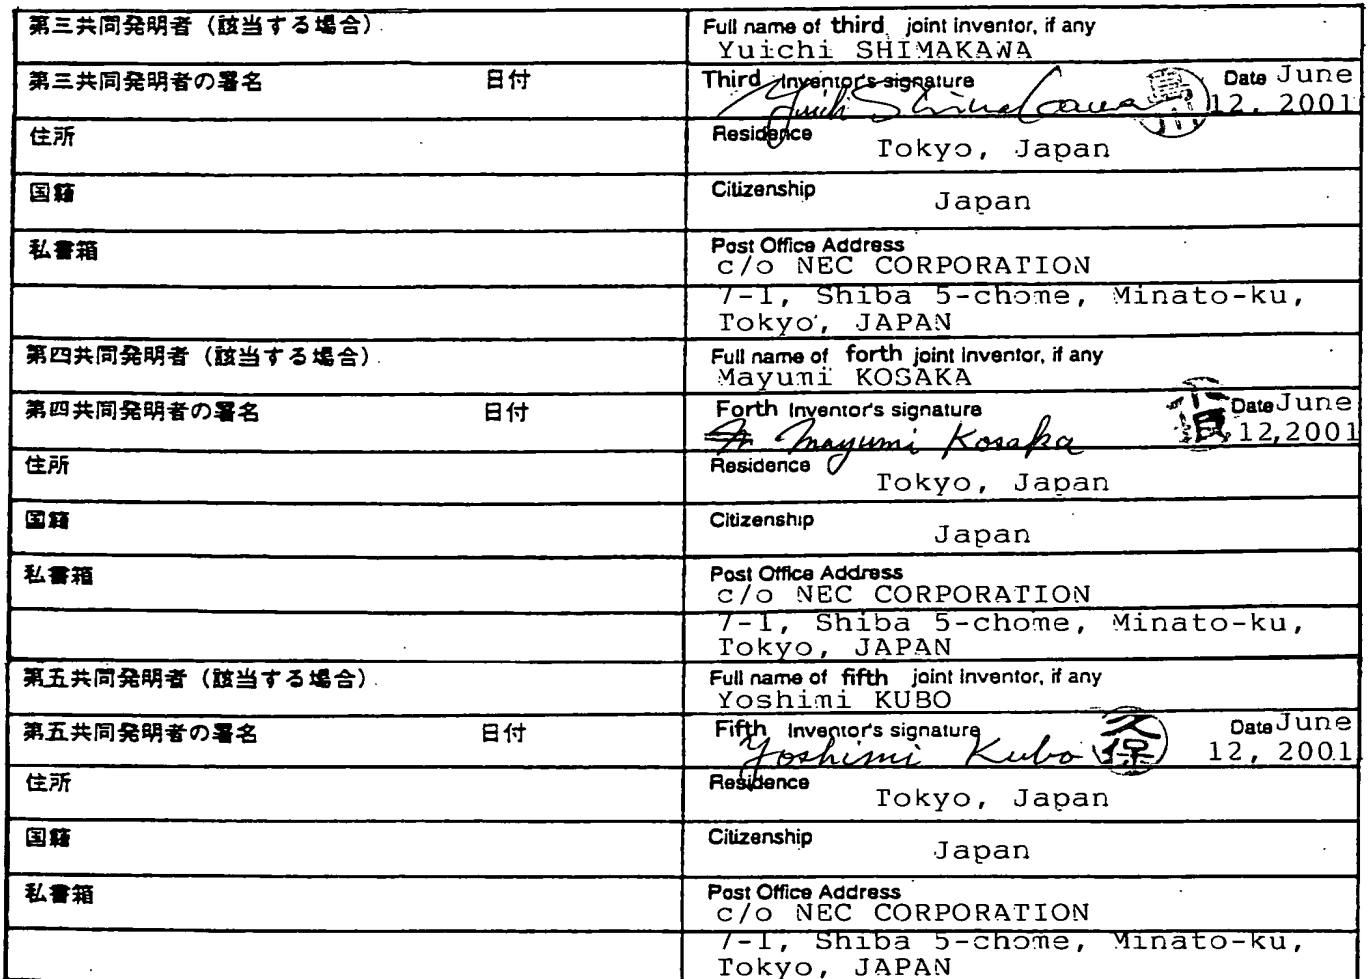 第三共同発明者（該当する場合）
Full name of third joint inventor, if any
Yuichi SHIMAKAWA
第三共同発明者の署名 日付
Third Inventor's signature Date June
Yuichi Shimakawa 12, 2001
住所
Residence
Tokyo, Japan
国籍
Citizenship
Japan
私書箱
Post Office Address
c/o NEC CORPORATION
7-1, Shiba 5-chome, Minato-ku,
Tokyo, JAPAN
第四共同発明者（該当する場合）
Full name of forth joint inventor, if any
Mayumi KOSAKA
第四共同発明者の署名 日付
Forth Inventor's signature Date June
Mayumi Kosaka 12,2001
住所
Residence
Tokyo, Japan
国籍
Citizenship
Japan
私書箱
Post Office Address
c/o NEC CORPORATION
7-1, Shiba 5-chome, Minato-ku,
Tokyo, JAPAN
第五共同発明者（該当する場合）
Full name of fifth joint inventor, if any
Yoshimi KUBO
第五共同発明者の署名 日付
Fifth Inventor's signature Date June
Yoshimi Kubo 久保 12, 2001
住所
Residence
Tokyo, Japan
国籍
Citizenship
Japan
私書箱
Post Office Address
c/o NEC CORPORATION
7-1, Shiba 5-chome, Minato-ku,
Tokyo, JAPAN